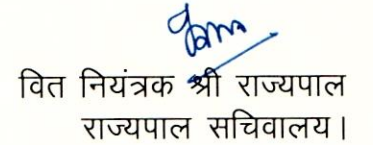 वित नियंत्रक श्री राज्यपाल
राज्यपाल सचिवालय।